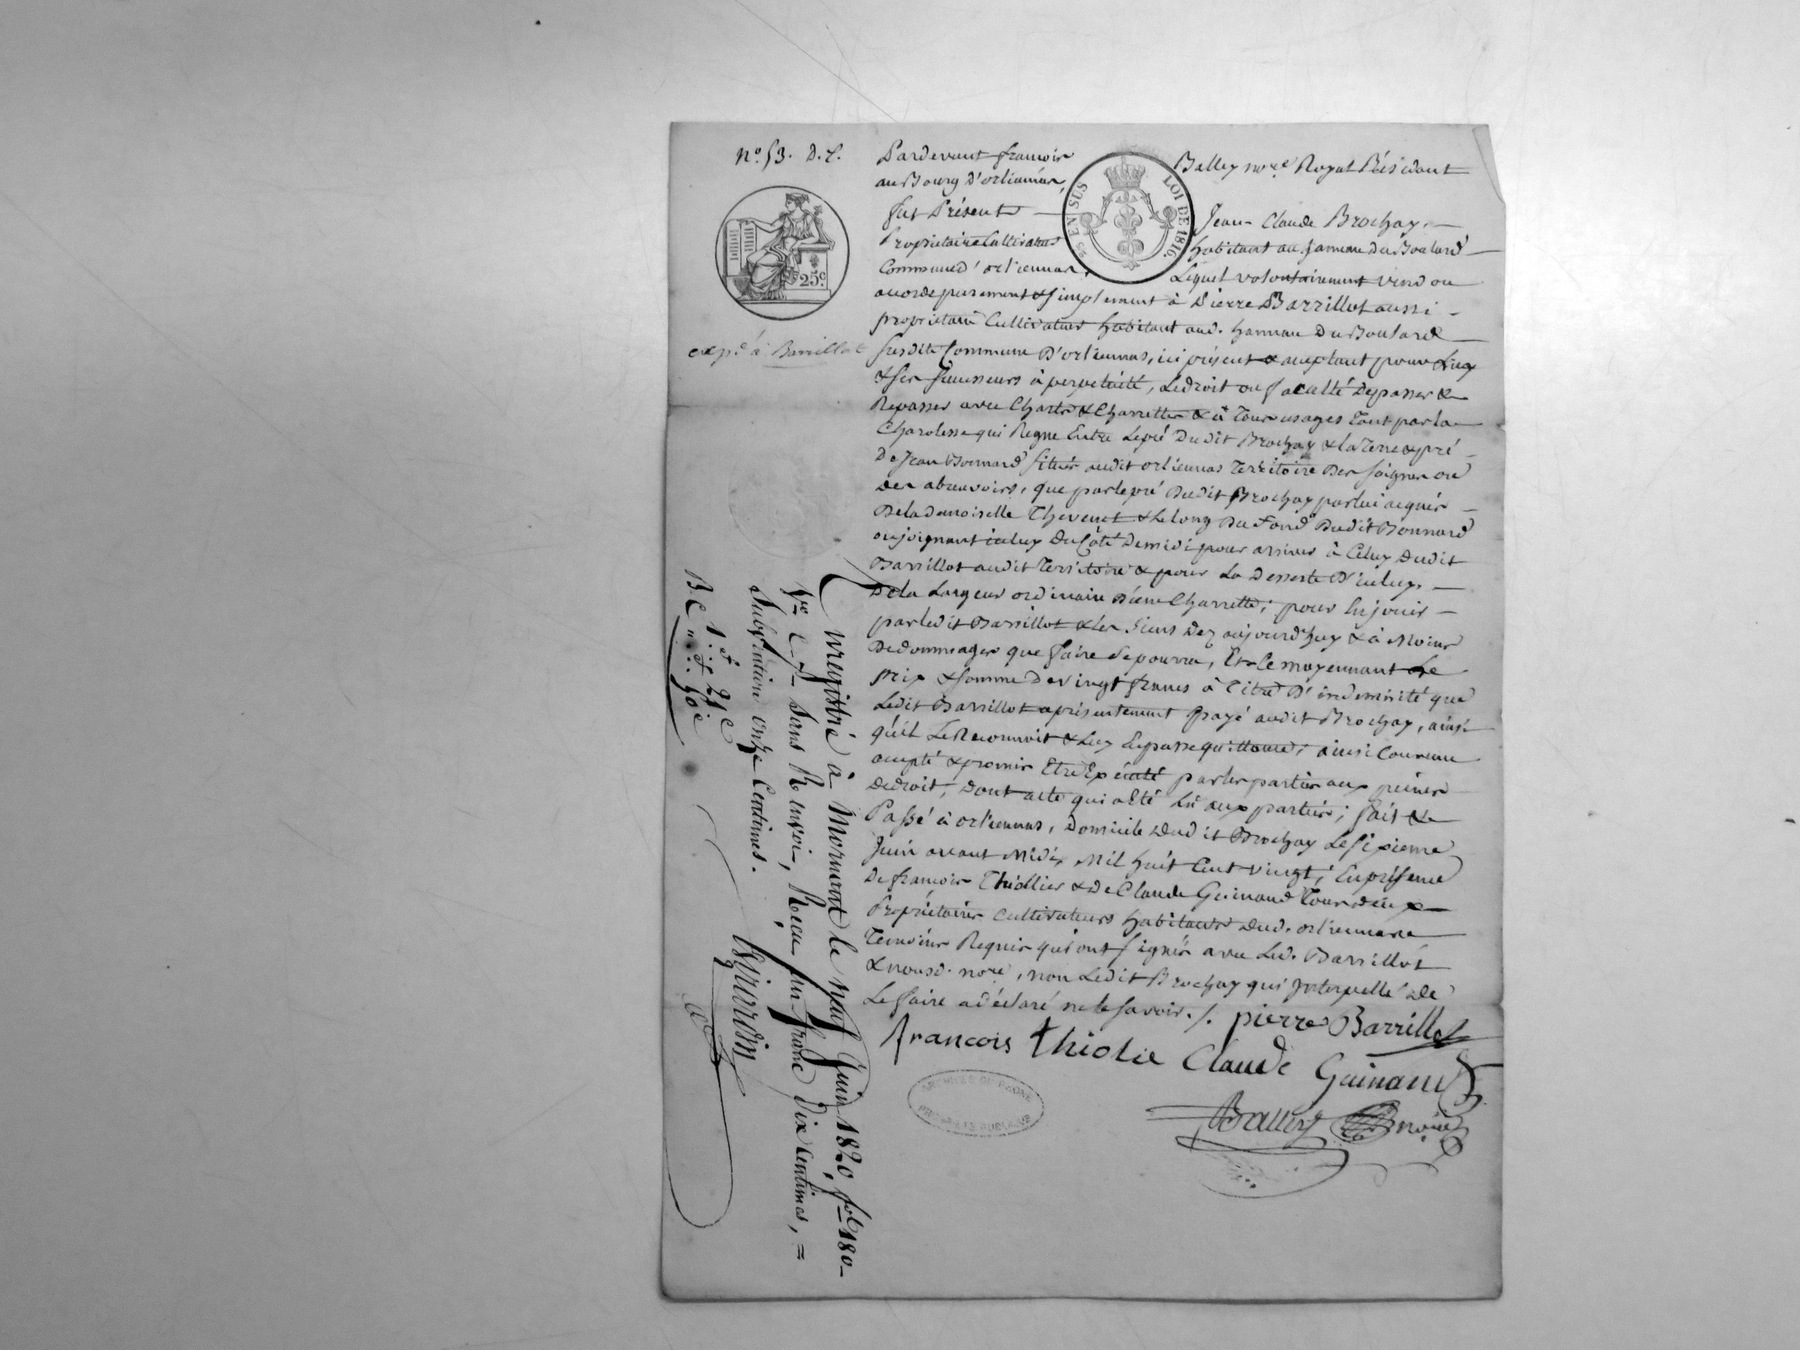 N.° 53. D. C.
25.c
25c EN SUS LOI DE 1816
expé à Barrillot
Pardevant françois Balley no.re Royal Résidant
au Bourg d'orliennas,
fut Présent Jean-Claude Brochay,
Proprietaire Cultivateur habitant au hameau Du Boulard
Commune d'orliennas, Lequel volontairement vend ou
acorde purement & simplement à Pierre Barrillot aussi
proprietaire Cultivateur habitant aud. hameau Du Boulard
susdite Commune D'orliennas, ici présent & acceptant pour Luy
& ses successeurs à perpetuité, Le droit ou faculté De passer &
Repasser avec Chars & Charrettes & à Tous usages Tant par la
Charolesse qui Regne Entre Le pré Dudit Brochay & la Terre & pré
De Jean Bonnard situés audit orliennas Territoire Des soignes ou
des abreuvoirs, que par le pré Dudit Brochay par lui acquis
De la Demoiselle Thevenet & Le long Du fond Dudit Bonnard
en joignant iceluy Du Côté De midi pour arriver à Celuy Dudit
Barrillot audit Territoire & pour La Desserte D'iceluy,
De la Largeur ordinaire D'une Charrette; pour En jouir
par ledit Barrillot & Les Siens Dez aujourd'huy & à Moins
De dommages que faire se pourra, Et Ce moyennant Le
prix & somme De vingt francs à Titre D'indemnité que
Ledit Barrillot a présentement payé audit Brochay, ainsi
qu'il Le Reconnoit & Luy En passe quittance, ainsi Convenu
accepté & promis Etre Exécuté par les parties aux peines
De droit, Dont acte qui a Eté Lu aux parties; fait &
Passé à orliennas, Domicile Dudit Brochay Le sixieme
Juin avant Midi, Mil huit Cent vingt; En présence
De françois Thiollier & De Claude Guinand Tous deux
Propriétaires Cultivateurs habitants Dud. orliennas
Temoins Requis qui ont signés avec Led. Barrillot
& nousd. no.re, non Ledit Brochay qui Interpellé De
Le faire a déclaré ne le savoir./.
pierre Barrillot
francois thiolie Claude Guinand
Balley no.re
ARCHIVES DU RHONE
Enregistré à Mornant le neuf Juin 1820, f.o 180
V.o C. 7 sans Renvoi, Reçu un franc Dix Centimes, =
Subvention onze Centimes.
1f 21c